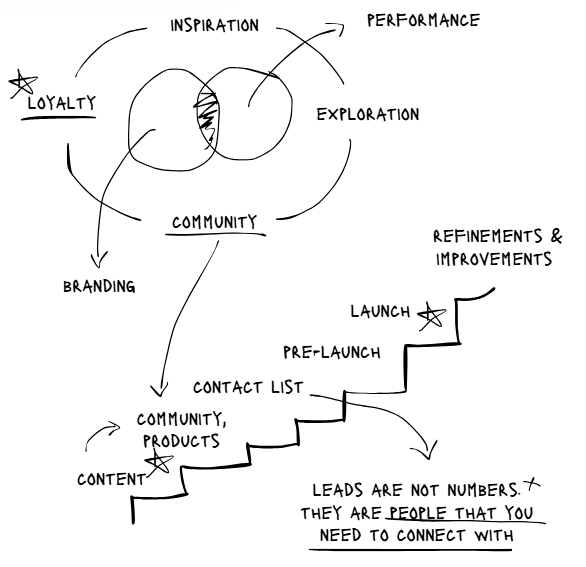 INSPIRATION
PERFORMANCE
LOYALTY
EXPLORATION
COMMUNITY
BRANDING
REFINEMENTS &
IMPROVEMENTS
LAUNCH
PRE-LAUNCH
CONTACT LIST
COMMUNITY,
PRODUCTS
CONTENT
LEADS ARE NOT NUMBERS.
THEY ARE PEOPLE THAT YOU
NEED TO CONNECT WITH